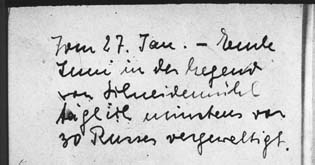 Vom 27. Jan. – Ende
Juni in der Gegend
von Schneidemühl
täglich mindestens von
30 Russen vergewaltigt.